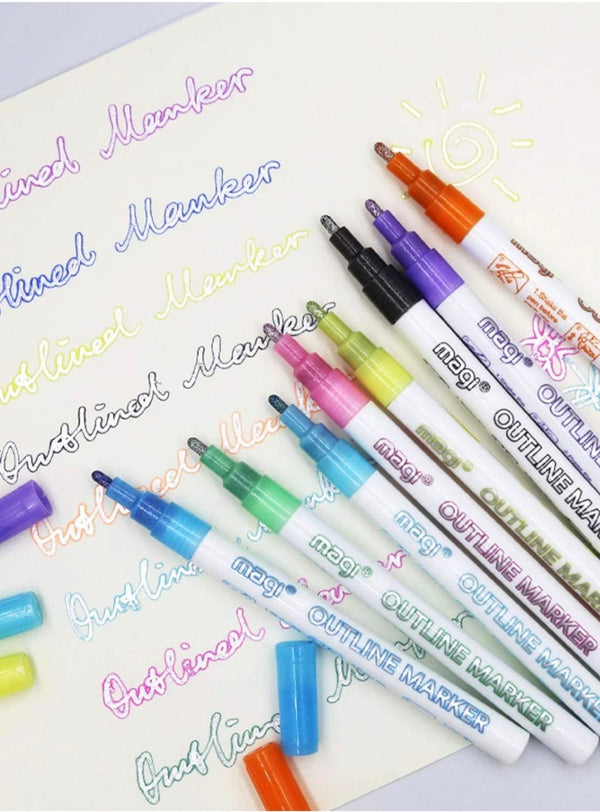 lined Marker
Outlined Marker
Outlined Marker
Outlined Marker
Outlined Marker
Outlined
Outlined Marker
Outlined M
magi®
1.Shake the
pen before
magi®
OUTLINE
magi®
OUTLINE MARK
magi®
OUTLINE MARK
magi®
OUTLINE MARKER
magi®
OUTLINE MARKER
magi®
OUTLINE MARKER
magi®
OUTLINE MARKER